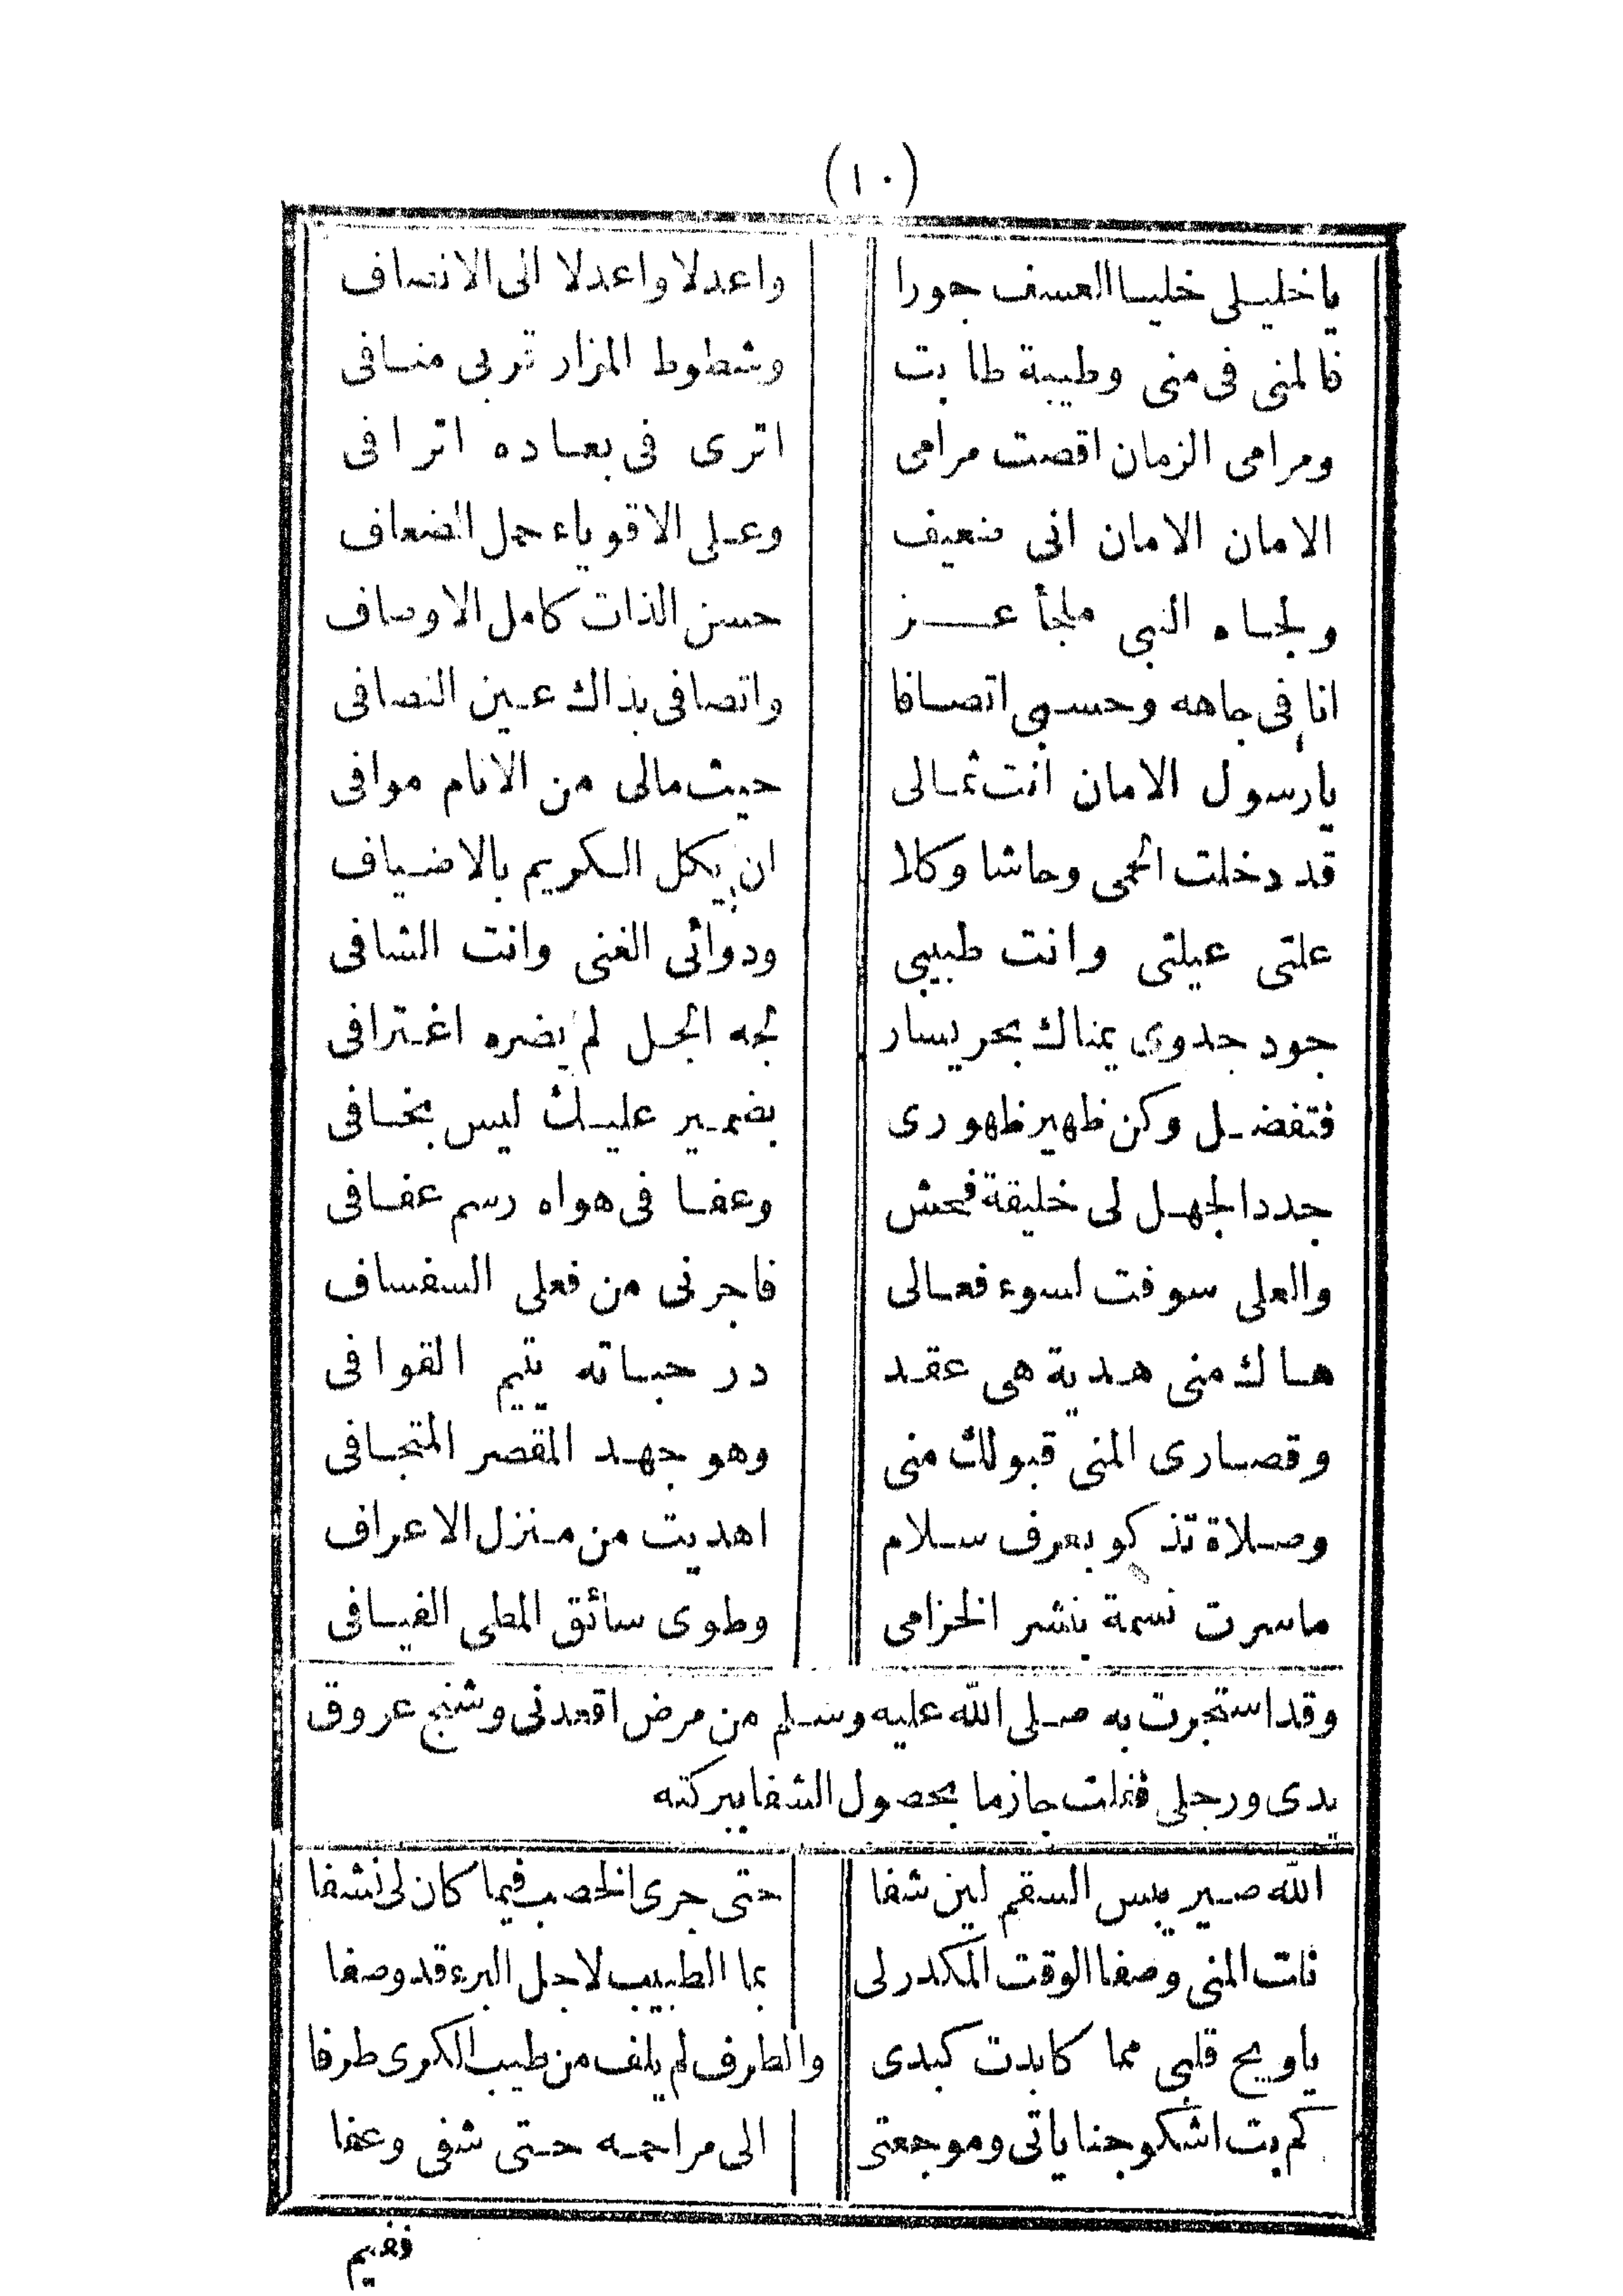 (١٠)
ياخليلى خليا العسف جورا واعدلا واعدلا الى الانصاف
فالمنى فى منى وطيبة طابت وشطوط المزار تربى منافى
ومرامى الزمان اقصت مرامى اترى فى بعاده اترافى
الامان الامان انى ضعيف وعلى الاقوياء حمل الضعاف
ولجاه النبى ملجأ عز حسن الذات كامل الاوصاف
انا فى جاهه وحسبى اتصافا واتصافى بذاك عين النصافى
يارسول الامان انت ثمالى حيث مالى من الانام موافى
قد دخلت الحمى وحاشا وكلا ان يكل الكريم بالاضياف
علتى عيلتى وانت طبيبى ودوائى الغنى وانت الشافى
جود جدوى يمناك بحر يسار لجه الجل لم يضره اغترافى
فتفضل وكن ظهير ظهورى بضمير عليك ليس بخافى
جدد الجهل لى خليقة فحش وعفا فى هواه رسم عفافى
والعلى سوفت لسوء فعالى فاجرنى من فعلى السفساف
هاك منى هدية هى عقد در حباته يتيم القوافى
وقصارى المنى قبولك منى وهو جهد المقصر المتجافى
وصلاة تذكو بعرف سلام اهديت من منزل الاعراف
ماسرت نسمة بنشر الخزامى وطوى سائق المطى الفيافى
وقد استجرت به صلى الله عليه وسلم من مرض اقعدنى وشنج عروق
يدى ورجلى فقلت جازما بحصول الشفا ببركته
الله صير يبس السقم لين شفا حتى جرى الخصب فيما كان لى نشفا
نلت المنى وصفا الوقت المكدر لى بما الطبيب لاجل البرء قد وصفا
ياويح قلبى مما كابدت كبدى والطرف لم يلف من طيب الكرى طرفا
كم بت اشكو جناياتى وموجعتى الى مراحمه حتى شفى وعفا
ففيم